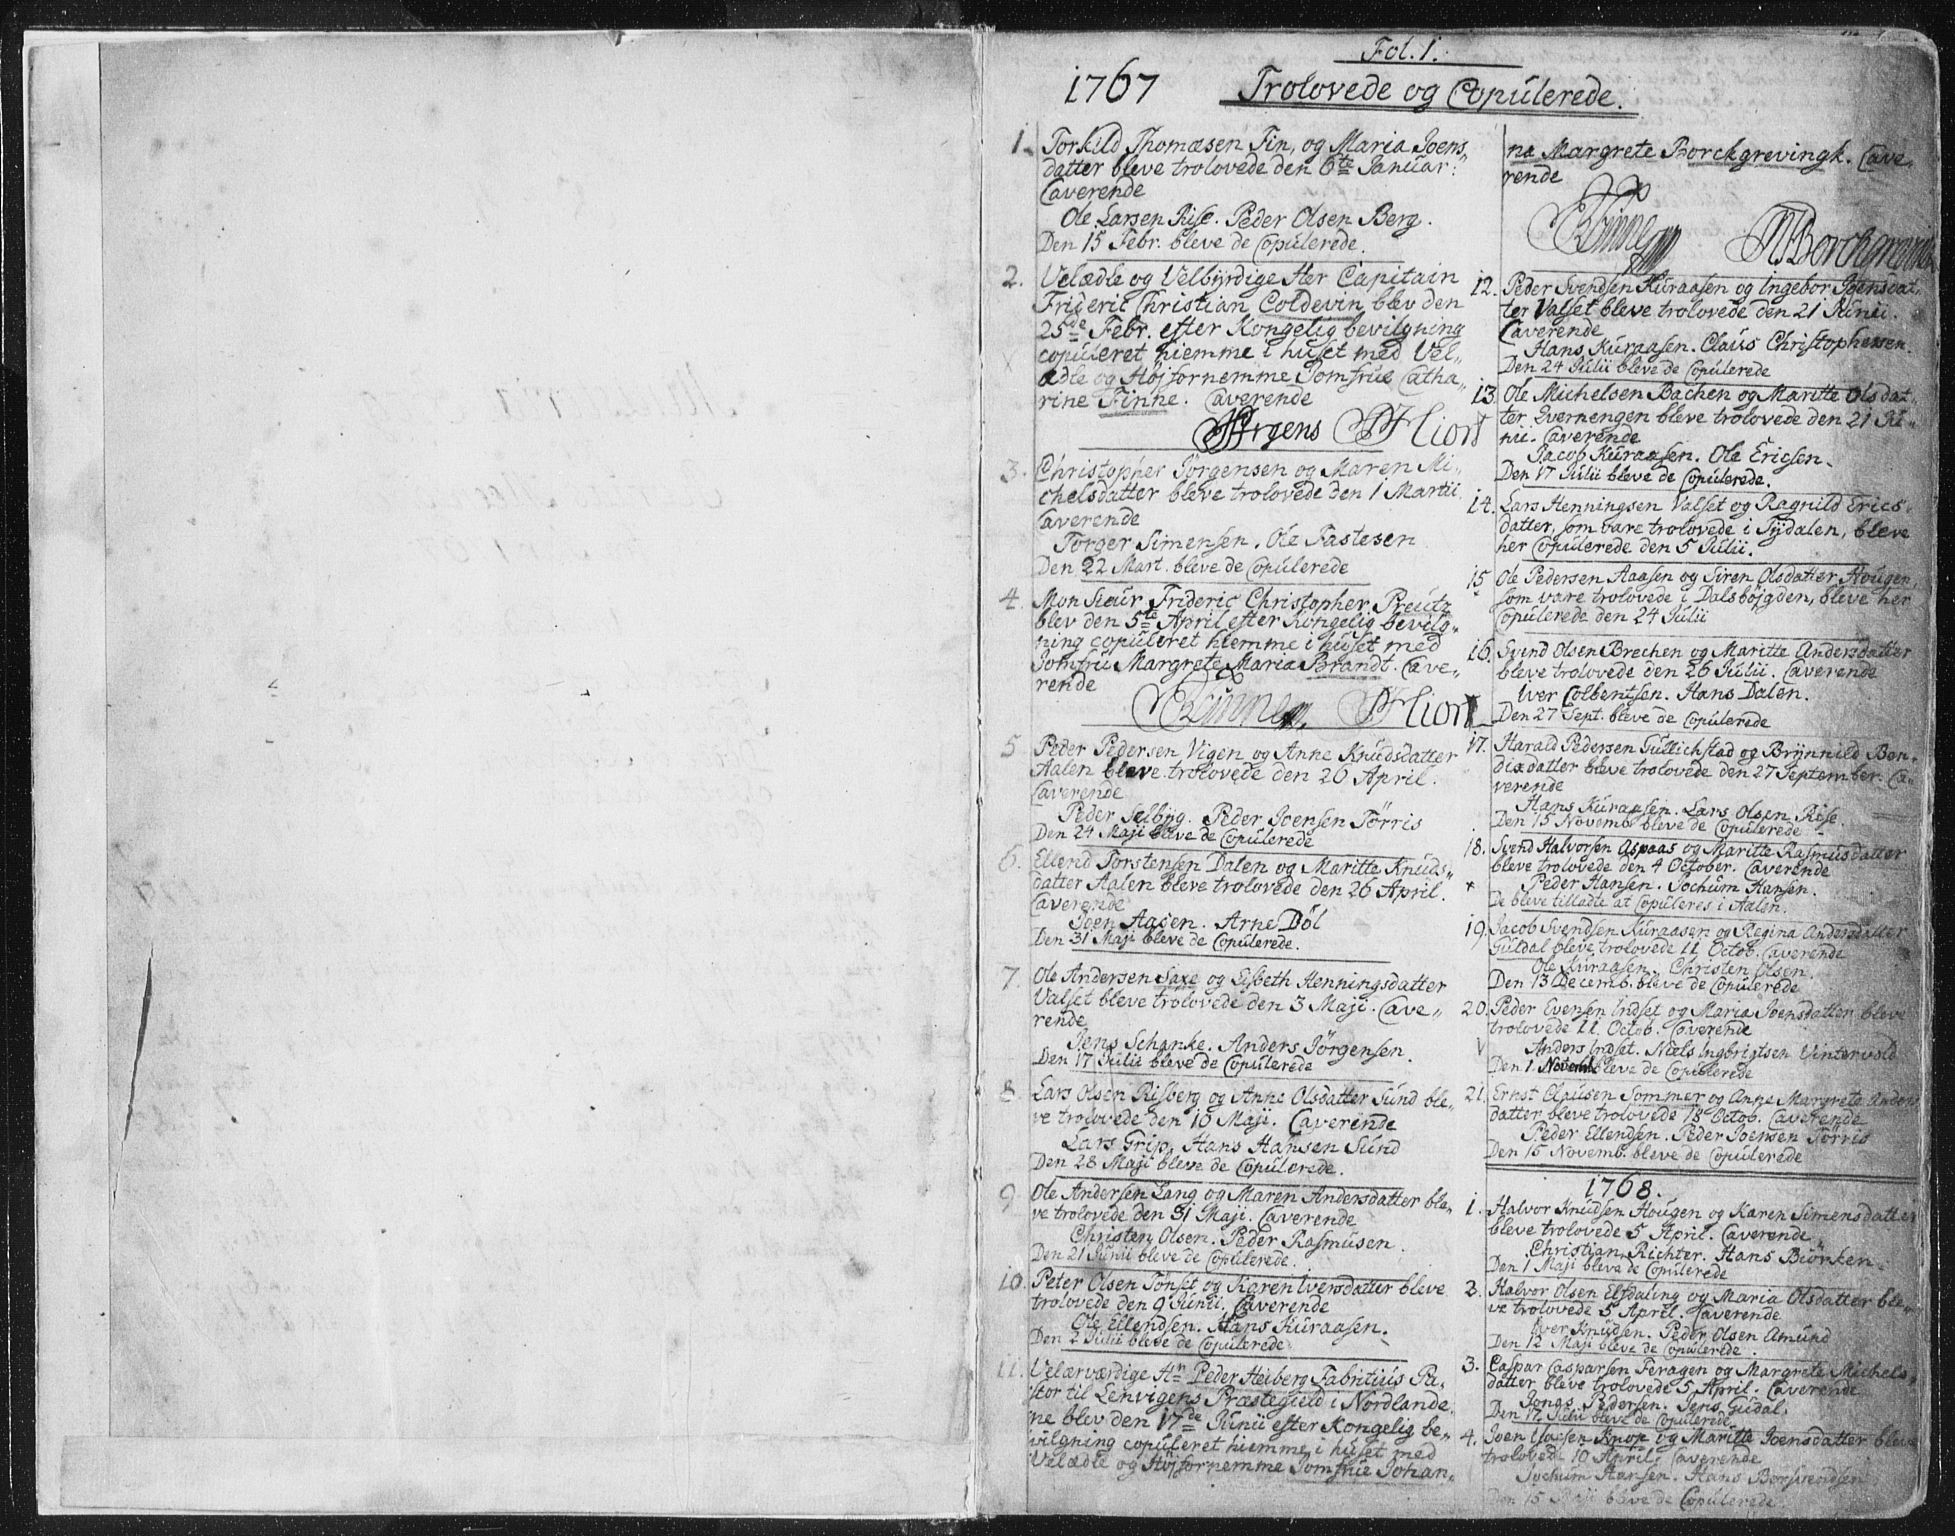 Fol. 1.
1767 Trolovede og Copulerede.
1. Torkild Thomæsen Fin, og Maria Joens„
datter bleve trolovede den 6te Januar:
Caverende
Ole Larsen Rise. Peder Olsen Berg.
Den 15 Febr. bleve de Copulerede.
2. Velædle og Velbyrdige Her Capitain
Frideric Christian Coldevin blev den
25de Febr. efter Kongelig bevilgning
copuleret hiemme i huset med Vel„
ædle og Højfornemme Jomfrue Catha„
rine Finne. Caverende
Irgens Hiort
3. Christopher Jörgensen og Maren Mi„
chelsdatter bleve trolovede den 1 Martii
Caverende
Torger Simensen. Ole Fastesen
Den 22 Mart. bleve de Copulerede
4. Mon Sieur Frideric Christopher Preutz
blev den 5te April efter Kongelig bevilg„
ning copuleret hiemme i huset med
Jomfru Margrete Maria Brandt. Cave„
rende
Finne Hiort
5 Peder Pedersen Vigen og Anne Knudsdatter
Aalen bleve trolovede den 26 April.
Caverende
Peder Selbyg. Peder Joensen Törris
Den 24 Maji bleve de Copulerede
6. Ellend Torstensen Dalen og Maritte Knuds„
datter Aalen bleve trolovede den 26 April.
Caverende
Joen Aasen. Arne Döl
Den 31 Maji bleve de Copulerede.
7. Ole Andersen Saxe og Lisbeth Henningsdatter
Valset bleve trolovede den 3 Maji. Cave„
rende
Jens Schanke. Anders Jörgensen.
Den 17 Julii bleve de Copulerede
8. Lars Olsen Risberg og Anne Olsdatter Sund ble„
ve trolovede den 10 Maji. Caverende
Lars Grip. Hans Hansen Sund
Den 28 Maji bleve de Copulerede.
9 Ole Andersen Lang og Maren Andersdatter ble„
ve trolovede den 31 Maji. Caverende
Christen Olsen. Peder Rasmusen.
Den 21 Junii bleve de Copulerede.
10. Peter Olsen Tönset og Karen Iversdatter bleve
trolovede den 9 Junii. Caverende
Ole Ellendsen. Hans Kuraasen.
Den 2 Julii bleve de Copulerede
11. Velærværdige Hr Peder Heiberg Fabritius Pa„
stor til Lenvigens Præstegield i Nordlande„
ne blev den 17de Junii efter Kongelig be„
vilgning copuleret hiemme i huset med
Velædle og Højfornemme Jomfrue Johan„
na Margrete Borckgrevingk. Cave„
rende
Finne Borchgrevink
12. Peder Svendsen Kuraasen og Ingebor Joensdat„
ter Valset bleve trolovede den 21 Junii.
Caverende
Hans Kuraasen. Claus Christophersen.
Den 24 Julii bleve de Copulerede
13. Ole Michelsen Bachen og Maritte Olsdat„
ter Evernengen bleve trolovede den 21 Ju„
nii. Caverende
Jacob Kuraasen. Ole Ericsen.
Den 17 Julii bleve de Copulerede.
14. Lars Henningsen Valset og Ragnild Erics„
datter, som vare trolovede i Tydalen, bleve
her Copulerede den 5 Julii.
15 Ole Pedersen Aaasen og Siren Olsdatter Hougen,
som vare trolovede i Dalsbøjgden, bleve her
Copulerede den 24 Julii
16. Svend Olsen Brechen og Maritte Andersdatter
bleve trolovede den 26 Julii. Caverende
Iver Colbentsen. Hans Dalen.
Den 27 Sept. bleve de Copulerede
17. Harald Pedersen Gullichstad og Brynnild Ben„
dixdatter bleve trolovede den 27 September. Ca„
verende
Hans Kuraasen. Lars Olsen Rise.
Den 15 Novemb. bleve de Copulerede
18. Svend Halvorsen Aspaas og Maritte Rasmusdatter
bleve trolovede den 4 October. Caverende
Peder Hansen. Jochum Hansen.
De bleve tilladte at Copuleres i Aalen.
19. Jacob Svendsen Kuraasen og Regina Andersdatter
Guldal bleve trolovede 11 Octob. Caverende
Ole Kuraasen. Christen Olsen.
Den 13 Decemb. bleve de Copulerede
20. Peder Evensen Indset og Maria Joensdatter bleve
trolovede 11 Octob. Caverende
Anders Indset. Niels Ingbrigtsen Vintervold
Den 1 Novemb. bleve de Copulerede
21. Ernst Clausen Sommer og Anne Margrete Anders
datter bleve trolovede 18 Octob. Caverende
Peder Ellendsen. Peder Joensen Törris
Den 15 Novemb. bleve de Copulerede
1768.
1. Halvor Knudsen Hougen og Karen Simensdatter
bleve trolovede 5 April. Caverende
Christian Richter. Hans Biörken.
Den 1 Maji bleve de Copulerede
2. Halvor Olsen Elfdaling og Maria Olsdatter ble„
ve trolovede 5 April. Caverende
Iver Knudsen. Peder Olsen Amund
Den 12 Maji bleve de Copulerede.
3. Caspar Casparsen Feragen og Margrete Michels„
datter bleve trolovede 5 April. Caverende
Jens Pedersen. Jens Guldal.
Den 17 Julii bleve de Copulerede
4. Joen Knop og Maritte Joensdatter bleve
trolovede 10 April. Caverende
Jochum Hansen. Hans
Den 15 Maji bleve de Copulerede.